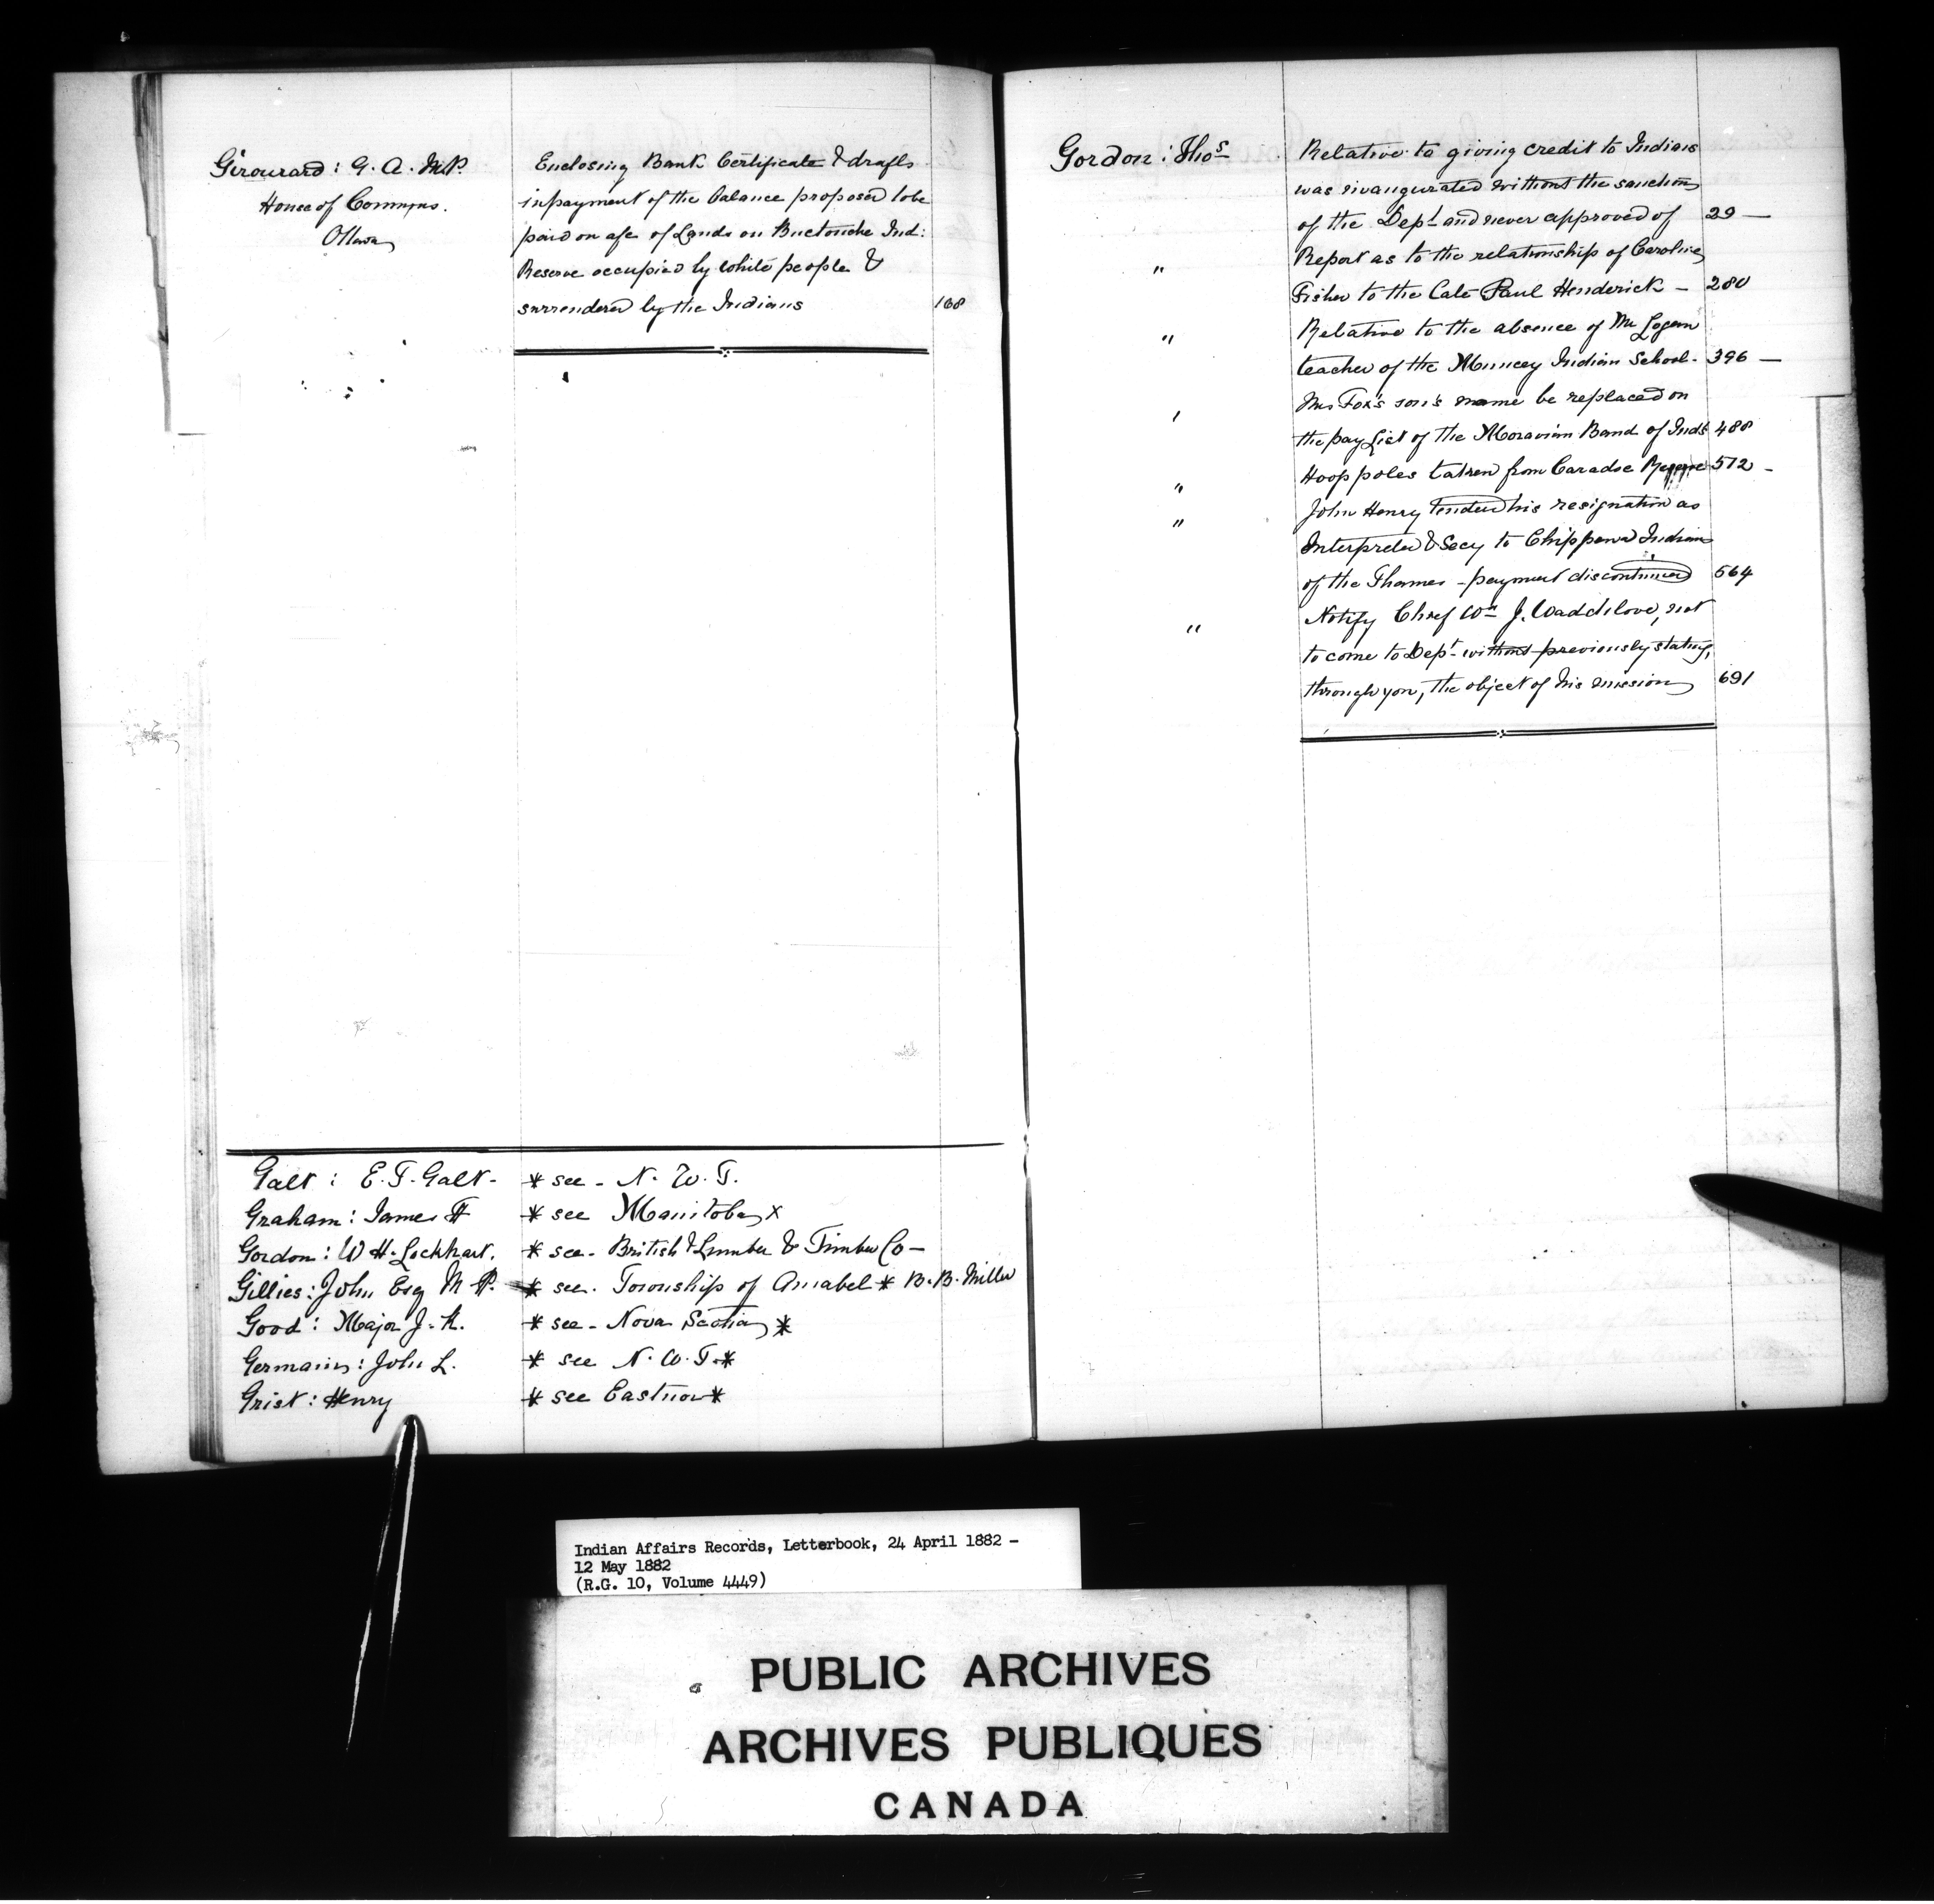 Girouard: G. A. M.P.
House of Commons.
Ottawa
Enclosing Bank Certificate & drafts
in payment of the balance proposed to be
paid on a/c of Lands on Buctouche Ind:
Reserve occupied by white people &
surrendered by the Indians 168
Galt: E. T. Galt - * see - N. W. T.
Graham: James H * see Manitoba x
Gordon: W H. Lockhart. * see - British Lumber & Timber Co -
Gillies: John Esq M P. * see. Township of Amabel * B. B. Miller
Good: Major J. R. * see - Nova Scotia *
Germain: John L. * see N. W. T. *
Grist: Henry * see *
Gordon: Thos
Relative to giving credit to Indians
was inaugurated without the sanction
of the Dept and never approved of 29 —
" Report as to the relationship of Caroline
Fisher to the late Paul Henderick — 280
" Relative to the absence of Mr Logan
teacher of the Muncey Indian School - 396 —
" Mrs Fox's son's name be replaced on
the pay List of the Moravian Band of Inds 488
" Hoop poles taken from Caradoc Reserve 512 -
" John Henry tended his resignation as
Interpreter & Secy to Chippewa Indians
of the Thames - payment discontinued 564
" Notify Chief Wm J. Waddilove, not
to come to Dept - without previously stating,
through you, the object of his mission 691
Indian Affairs Records, Letterbook, 24 April 1882 -
12 May 1882
(R.G. 10, Volume 4449)
PUBLIC ARCHIVES
ARCHIVES PUBLIQUES
CANADA